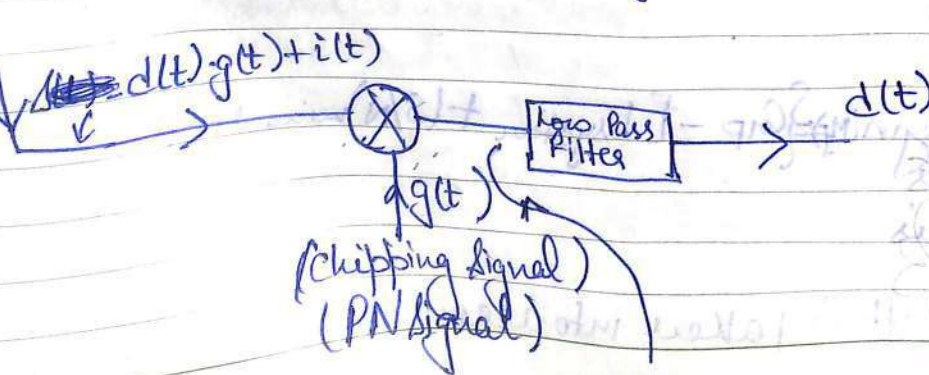 d(t)·g(t)+i(t)
d(t)
Low Pass
Filter
g(t)
(Chipping Signal)
(PN Signal)